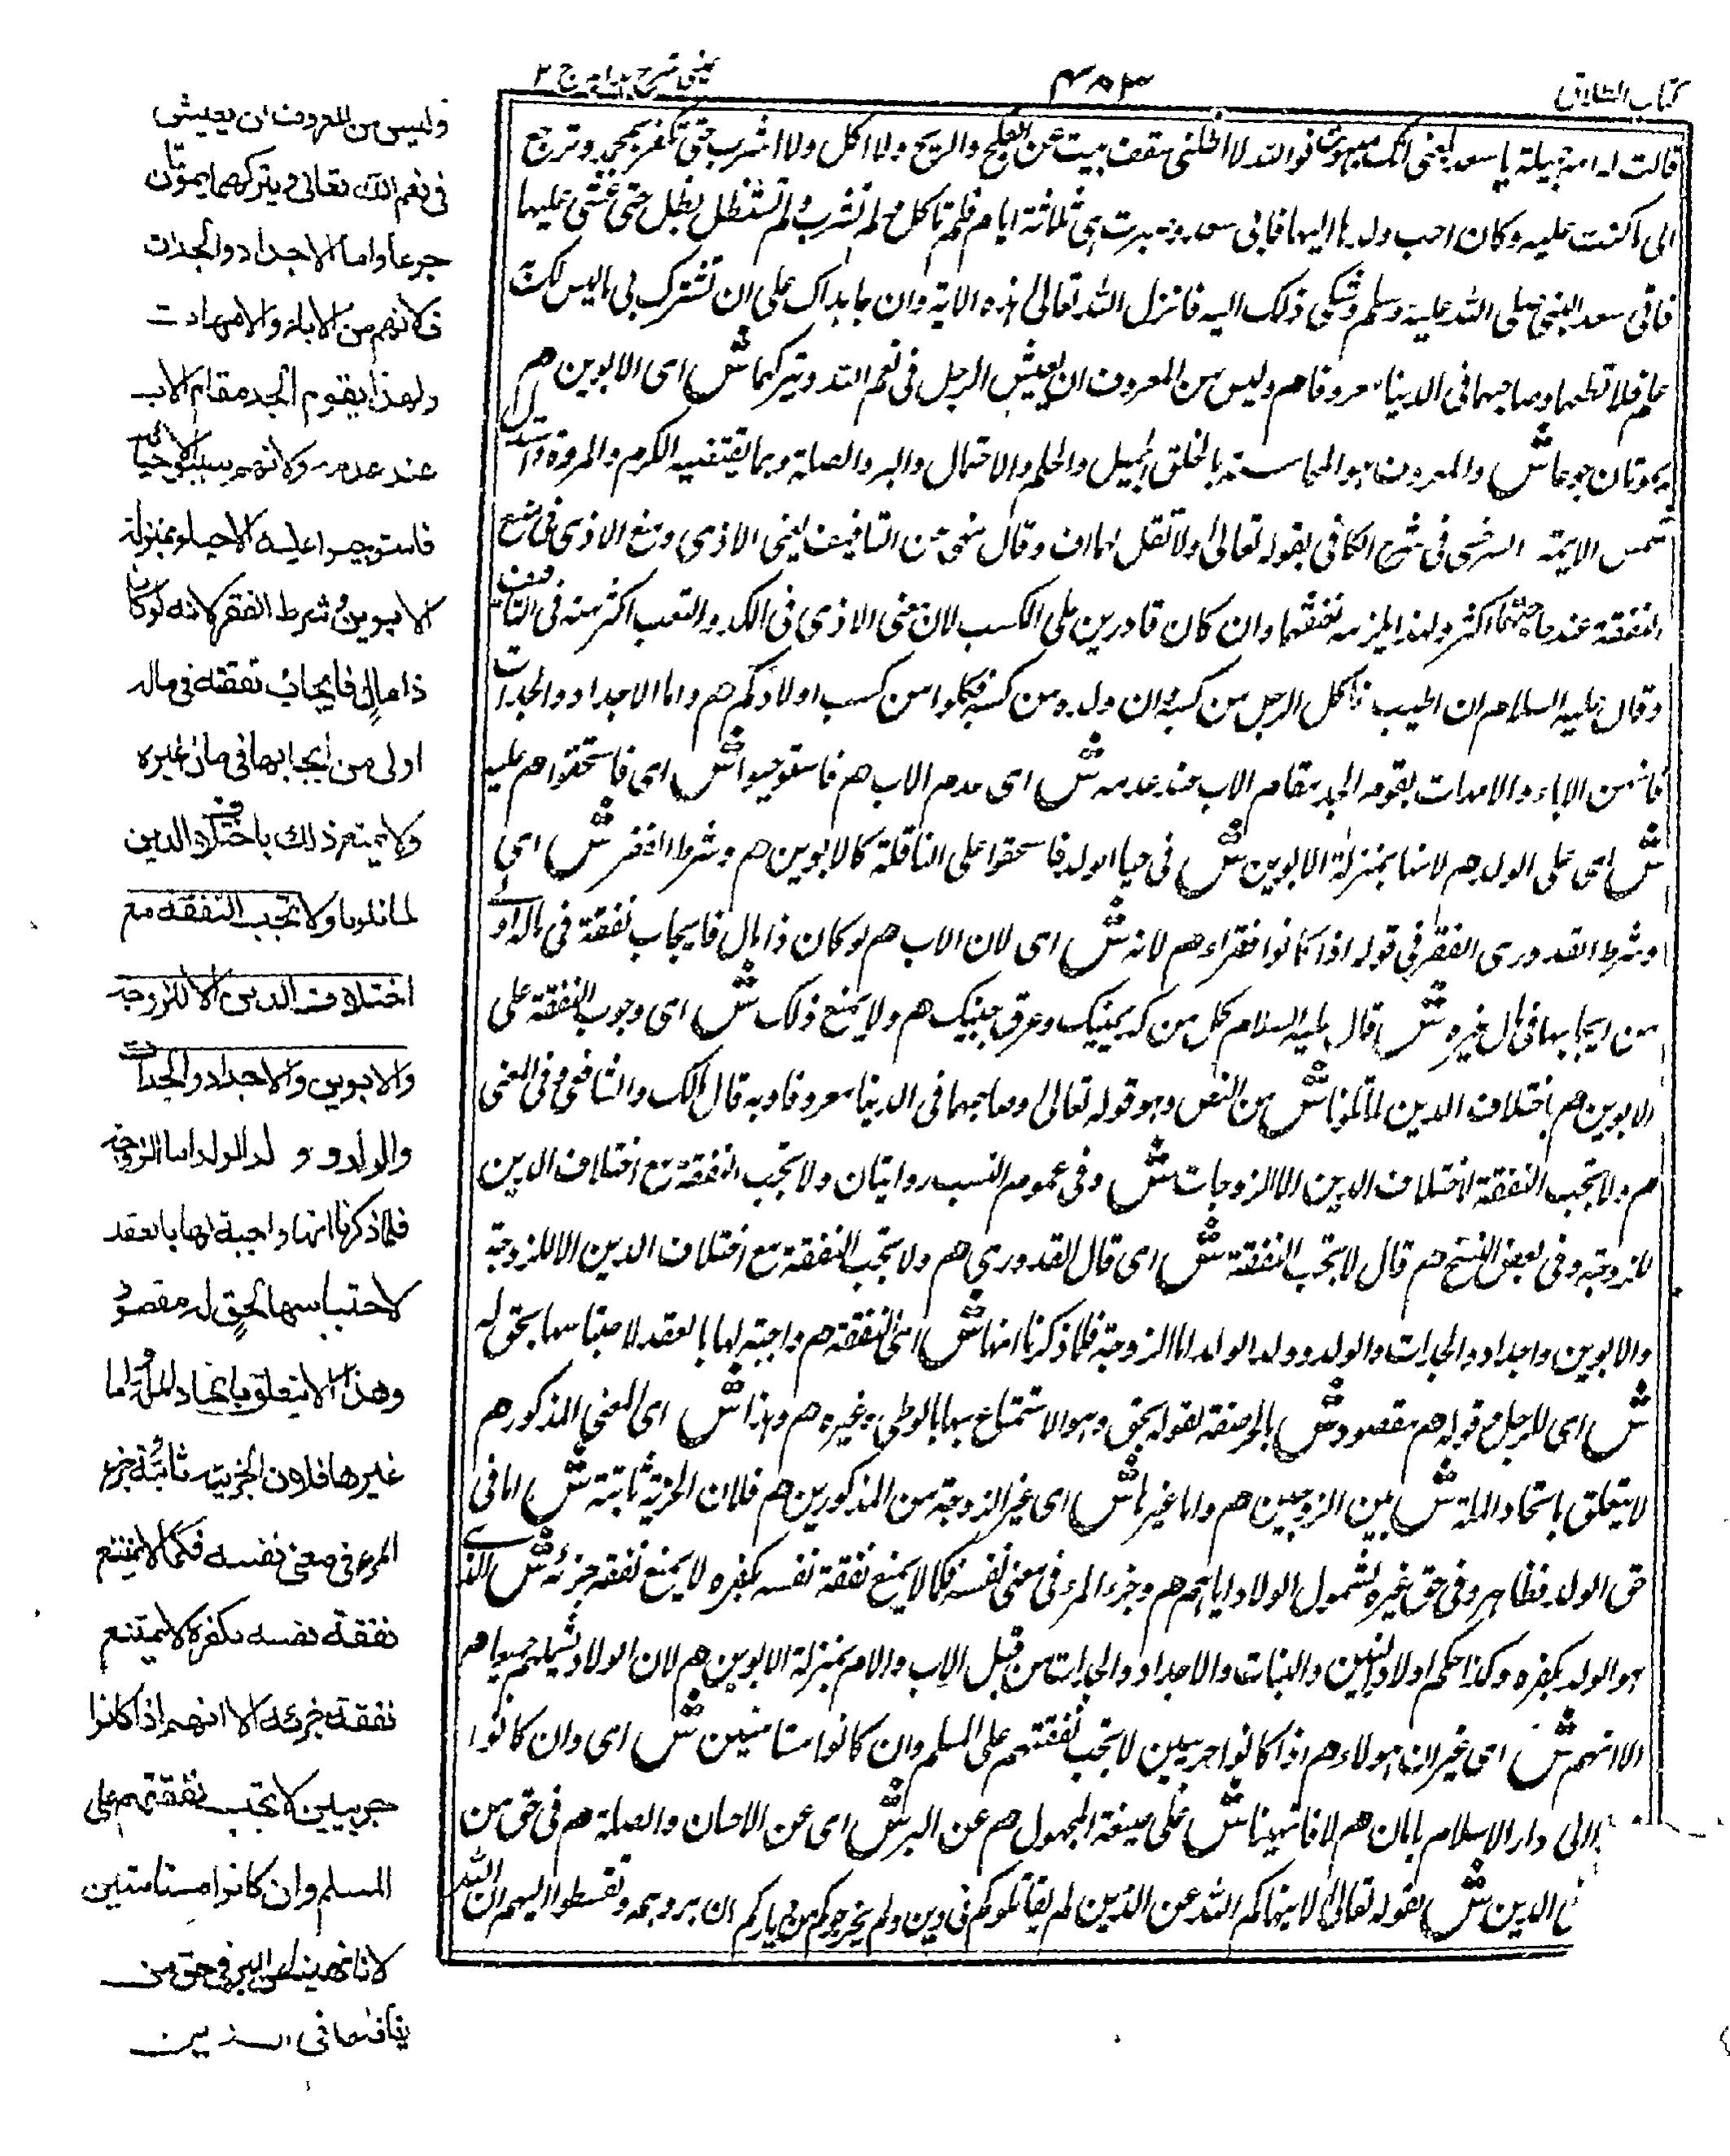 كتاب الطلاق
٤٨٣
عيني شرح هدايه ج ٢
قالت له امه جميلة يا سعد بلغني انك صبوت فوالله لا اظلني سقف بيت عن الضح والريح ولا اكل ولا اشرب حتى تكفر بمحمد وترجع
الى ما كنت عليه وكان احب ولدها اليها فابى سعد وصبرت هى ثلاثة ايام فلم تاكل ولم تشرب ولم تستظل بظل حتى غشى عليها
فاتى سعد النبى صلى الله عليه وسلم وشكى ذلك اليه فانزل الله تعالى هذه الاية وان جاهداك على ان تشرك بى ما ليس لك به
علم فلا تطعهما وصاحبهما فى الدنيا معروفا هم وليس من المعروف ان يعيش الرجل فى نعم الله ويتركهما ش اى الابوين هم
يموتان جوعا ش والمعروف هو المحاسنة بالخلق الجميل والحلم والاحتمال والبر والصلة وبما يقتضيه الكرم والمروة واستدل
شمس الايمة السرخسى فى شرح الكافى بقوله تعالى ولا تقل لهما اف وقال نهى عن التافيف لمعنى الاذى ومنع الاذى فى منع
النفقة عند حاجتهما اكثر ولهذا يلزمه نفقتهما وان كان قادرين على الكسب لان معنى الاذى فى الكد والتعب اكثر منه فى التافيف
وقال عليه السلام ان اطيب ما اكل الرجل من كسبه وان ولده من كسبه فكلوا من كسب اولادكم هم واما الاجداد والجدات
فانهم من الاباء والامهات يقوم الجد مقام الاب عند عدمه ش اى عدم الاب هم فاستوجبوا ش اى فاستحقوا هم عليه
ش اى على الولد هم لانها بمنزلة الابوين ش فى حيا الولد فاستحقوا على الناقلة كالابوين هم وشرط الفقر ش اى
وشرط القدورى الفقر فى قوله اذا كانوا فقراء هم لانه ش اى لان الاب هم لو كان ذا مال فايجاب نفقة فى ماله اولى
من ايجابها فى مال غيره ش قال عليه السلام كل من كد يمينك وعرق جبينك هم ولا يمنع ذلك ش اى وجوب النفقة على
الابوين هم باختلاف الدين لما تلونا ش من النص وهو قوله تعالى وصاحبهما فى الدنيا معروفا وبه قال مالك والشافعى وفى المغنى
هم ولا تجب النفقة لاختلاف الدين الا للزوجات ش وفى عموم النسب روايتان ولا تجب النفقة مع اختلاف الدين
للزوجة وفى بعض النسخ هم قال لا تجب النفقة ش اى قال القدورى هم ولا تجب النفقة مع اختلاف الدين الا للزوجة
والابوين واجداد والجدات والولد وولد الولد اما الزوجة فلما ذكرنا انها ش اى النفقة هم واجبة لها بالعقد لاحتباسها بحق له
ش اى للرجل م قوله هم مقصود ش بالجر صفة لقوله بحق وهو الاستمتاع بها بالوطى وغيره هم وهذا ش اى المعنى المذكور هم
لا يتعلق باتحاد الملة ش بين الزوجين هم واما غيرها ش اى غير الزوجة من المذكورين هم فلان الجزئية ثابتة ش اما فى
حق الولد فظاهر وفى حق غيره لشمول الولاد اياهم هم وجزء المرء فى معنى نفسه فكما لا يمنع نفقة نفسه بكفره لا يمنع نفقة جزئه ش الذى
هو الولد بكفره وكذا حكم اولاد البنين والبنات والاجداد والجدات من قبل الاب والام بمنزلة الابوين هم لان الولاد يشملهم جميعا هم
الا انهم ش اى غير ان هولاء هم اذا كانوا حربيين لا تجب نفقتهم على المسلم وان كانوا مستامنين ش اى وان كانوا
الى دار الاسلام بامان هم لانا نهينا ش على صيغة المجهول هم عن البر ش اى عن الاحسان والصلة هم فى حق من
الدين ش بقوله تعالى لا ينهاكم الله عن الذين لم يقاتلوكم فى الدين ولم يخرجوكم من دياركم ان تبروهم وتقسطوا اليهم ان الله
وليس من المعروف ان يعيش
فى نعم الله تعالى ويتركهما يموتان
جوعا واما الاجداد والجدات
فلانهم من الاباء والامهات
ولهذا يقوم الجد مقام الاب
عند عدمه ولانهم سببوا لاحيائه
فاستوجبوا عليه الاحياء بمنزلة
الابوين وشرط الفقر لانه لو كان
ذا مال فايجاب نفقته فى ماله
اولى من ايجابها فى مال غيره
ولا يمتنع ذلك باختلاف الدين
لما تلونا ولا تجب النفقة مع
اختلاف الدين الا للزوجة
والابوين والاجداد والجدات
والولد و ولد الولد اما الزوجة
فلما ذكرنا انها واجبة لها بالعقد
لاحتباسها لحق له مقصود
وهذا لا يتعلق باتحاد الملة واما
غيرها فلان الجزئية ثابتة وجزء
المرء فى معنى نفسه فكما لا يمتنع
نفقة نفسه بكفره لا يمتنع
نفقة جزئه الا انهم اذا كانوا
حربيين لا تجب نفقتهم على
المسلم وان كانوا مستامنين
لانا نهينا عن البر فى حق من
يقاتلنا فى الدين